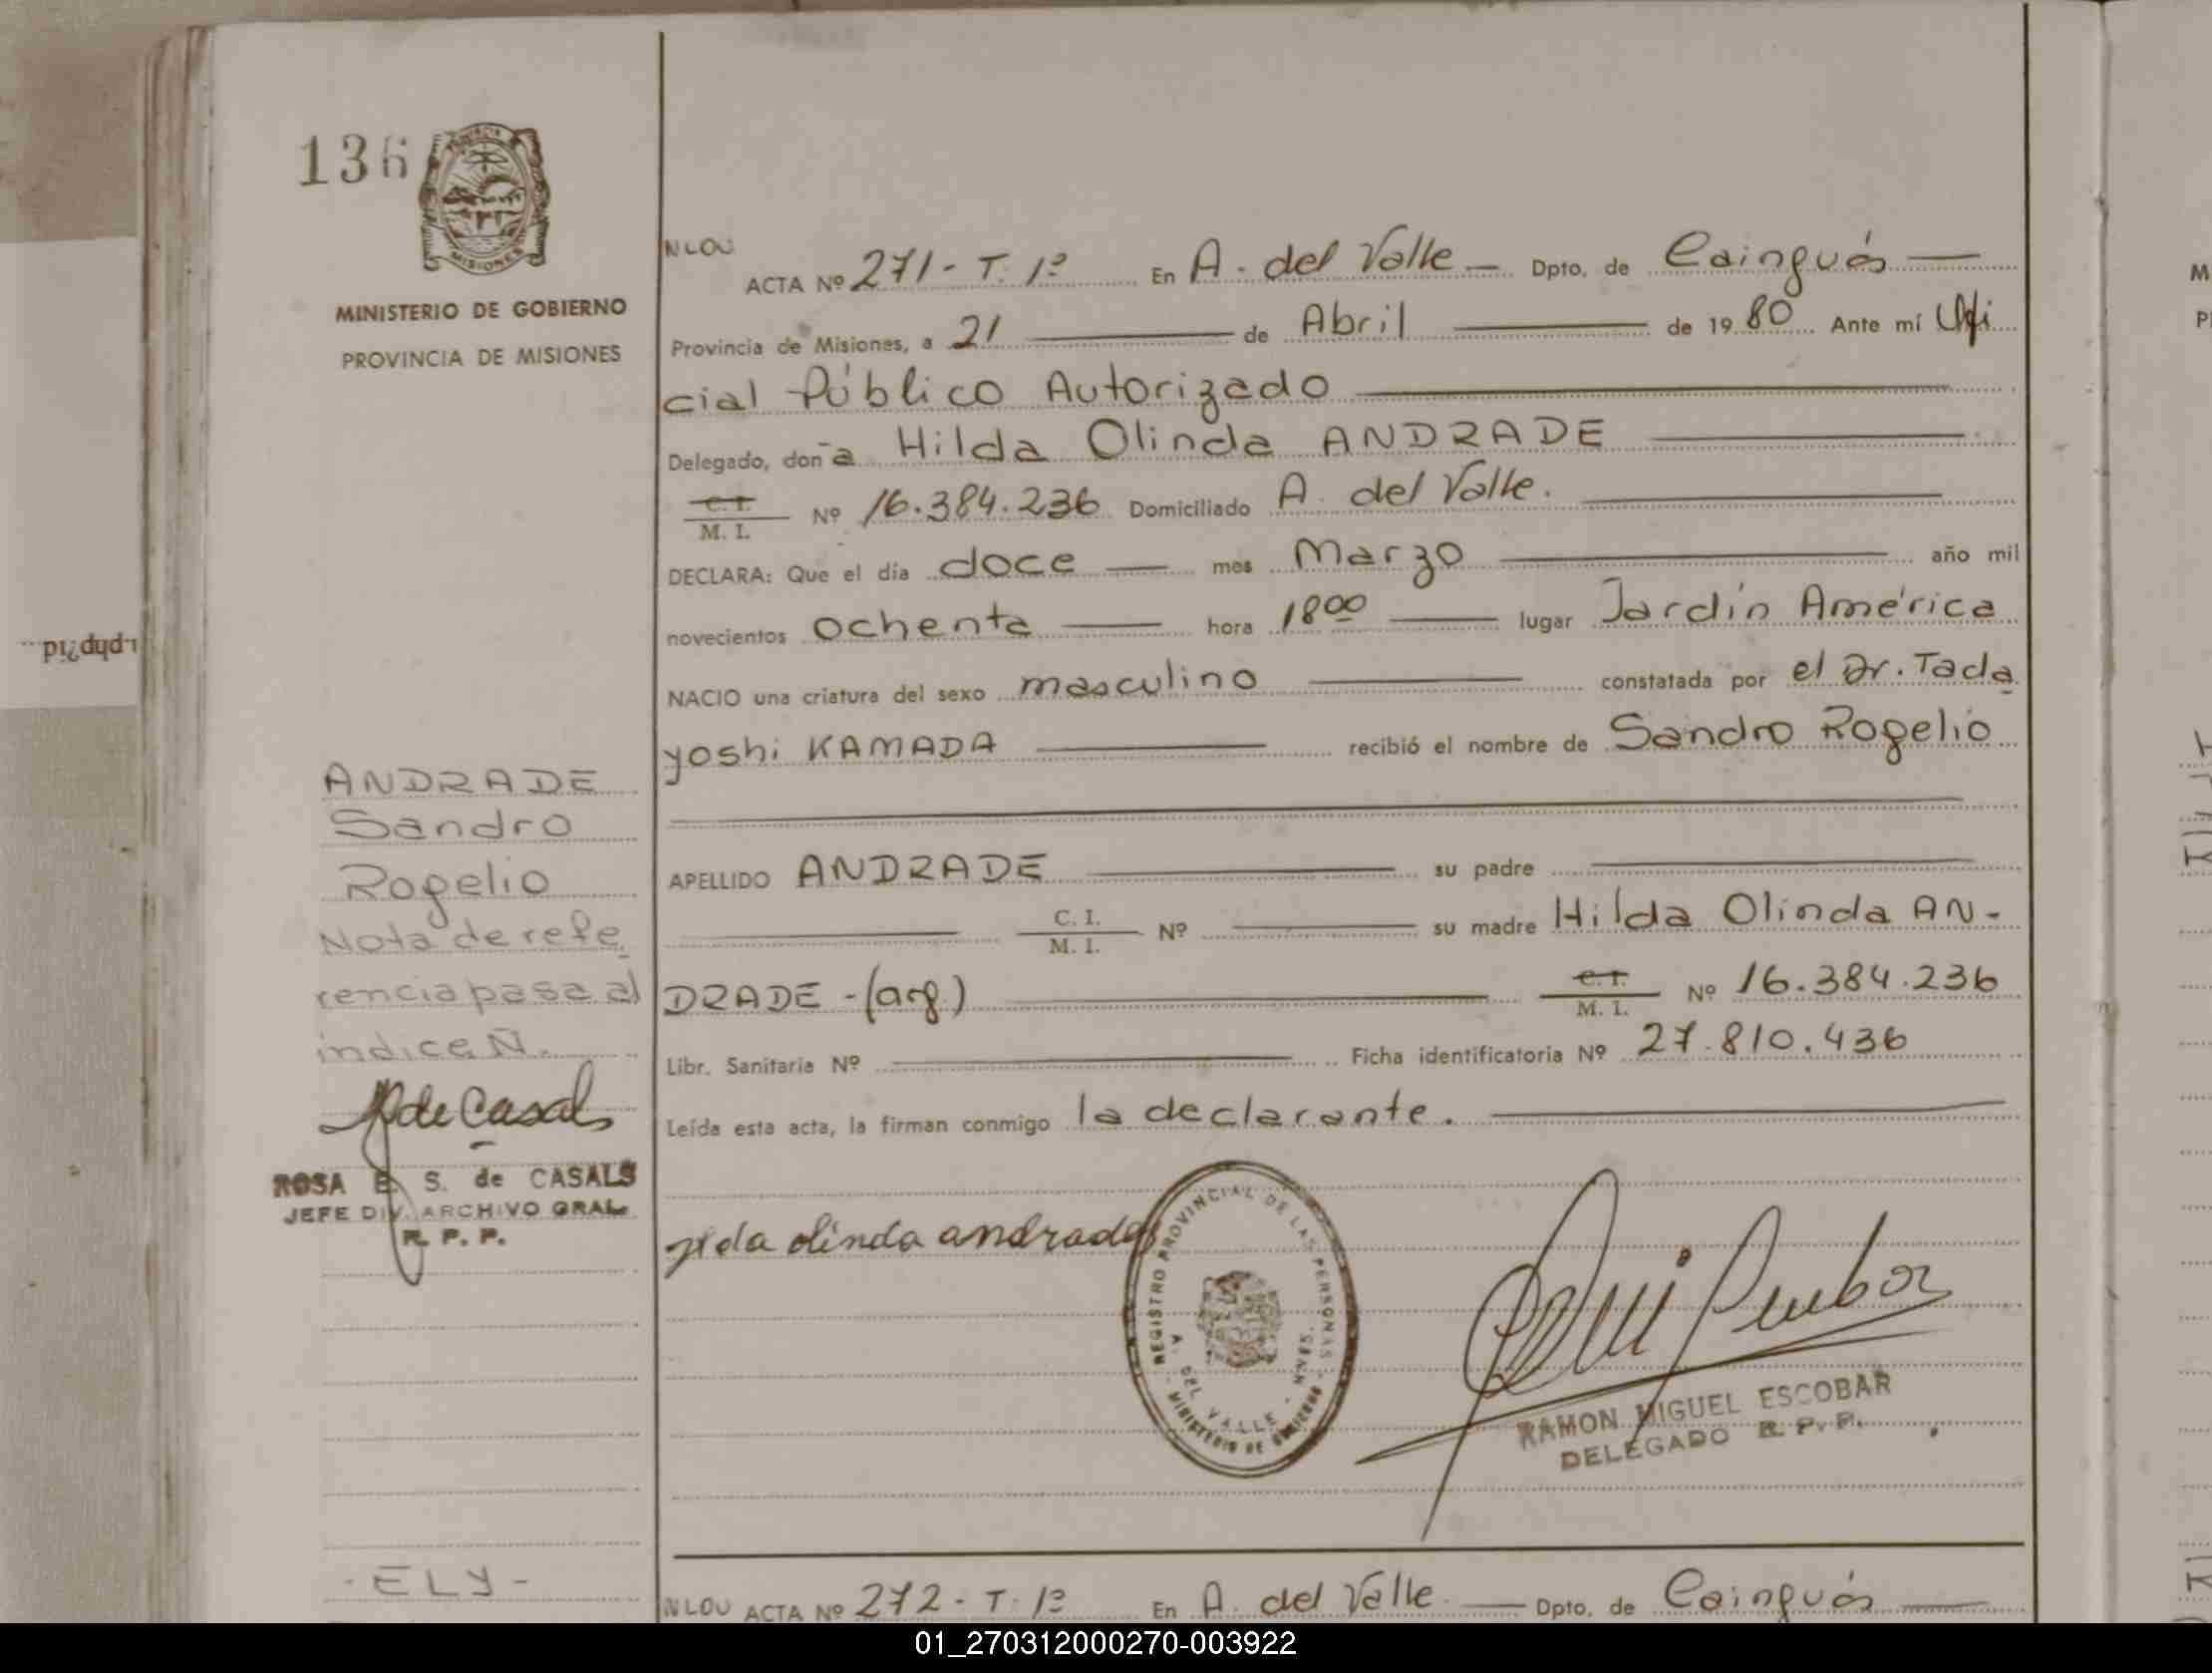 136
MISIONES
MINISTERIO DE GOBIERNO
PROVINCIA DE MISIONES
NLOU
ACTA Nº 271 - T. 1º En A. del Valle — Dpto. de Cainguás —
Provincia de Misiones, a 21 — de Abril — de 1980 Ante mí Ofi
cial Público Autorizado
Delegado, don a Hilda Olinda ANDRADE
C. I.
M. I. Nº 16.384.236 Domiciliado A. del Valle.
DECLARA: Que el día doce — mes Marzo — año mil
novecientos ochenta — hora 18 00 — lugar Jardín América
NACIO una criatura del sexo masculino — constatada por el Dr. Tada
yoshi KAMADA — recibió el nombre de Sandro Rogelio
APELLIDO ANDRADE — su padre —
C. I.
M. I. Nº — su madre Hilda Olinda AN-
DRADE - (arg) — C. I.
M. I. Nº 16.384.236
Libr. Sanitaria Nº — Ficha identificatoria Nº 27.810.436
Leída esta acta, la firman conmigo la declarante.
ANDRADE
Sandro
Rogelio
Nota de refe
rencia pasa al
índice Ñ.
de Casals
ROSA E. S. de CASALS
JEFE DIV. ARCHIVO GRAL.
R. P. P.
ilda olinda andrade
REGISTRO PROVINCIAL DE LAS PERSONAS
A. DEL VALLE - MNES.
MINISTERIO DE GOBIERNO
RAMON MIGUEL ESCOBAR
DELEGADO R. P. P.
- ELY -
NLOU ACTA Nº 272 - T. 1º En A. del Valle — Dpto. de Cainguás —
01_270312000270-003922